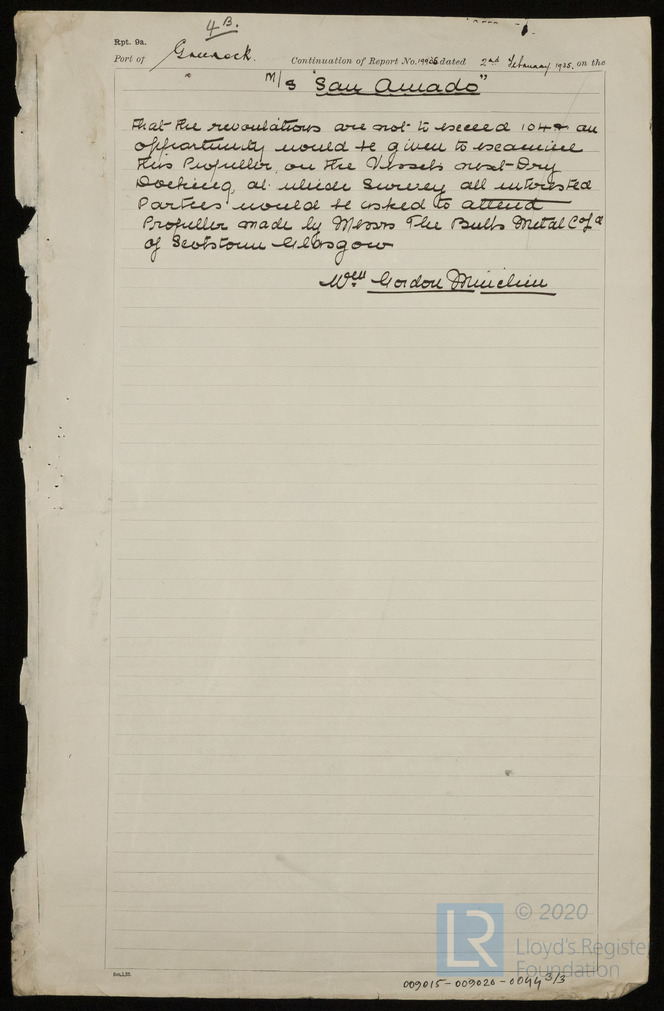 4B.
Rpt. 9a.
Port of Greenock. Continuation of Report No. 19935 dated 2nd February 1935. on the
M/S "San Amado"
that the revoulations are not to exceed 104 an
opportunity would be given to examine
this Propeller, on the Vessels next Dry
Docking, at which Survey all interested
Parties would be asked to attend
Propeller made by Messrs The Bulls Metal Co Ld
of Scotstoun Glasgow
Wm Gordon Minchin
© 2020
LR
Lloyd's Register
Foundation
009015-009020-0044 3/3